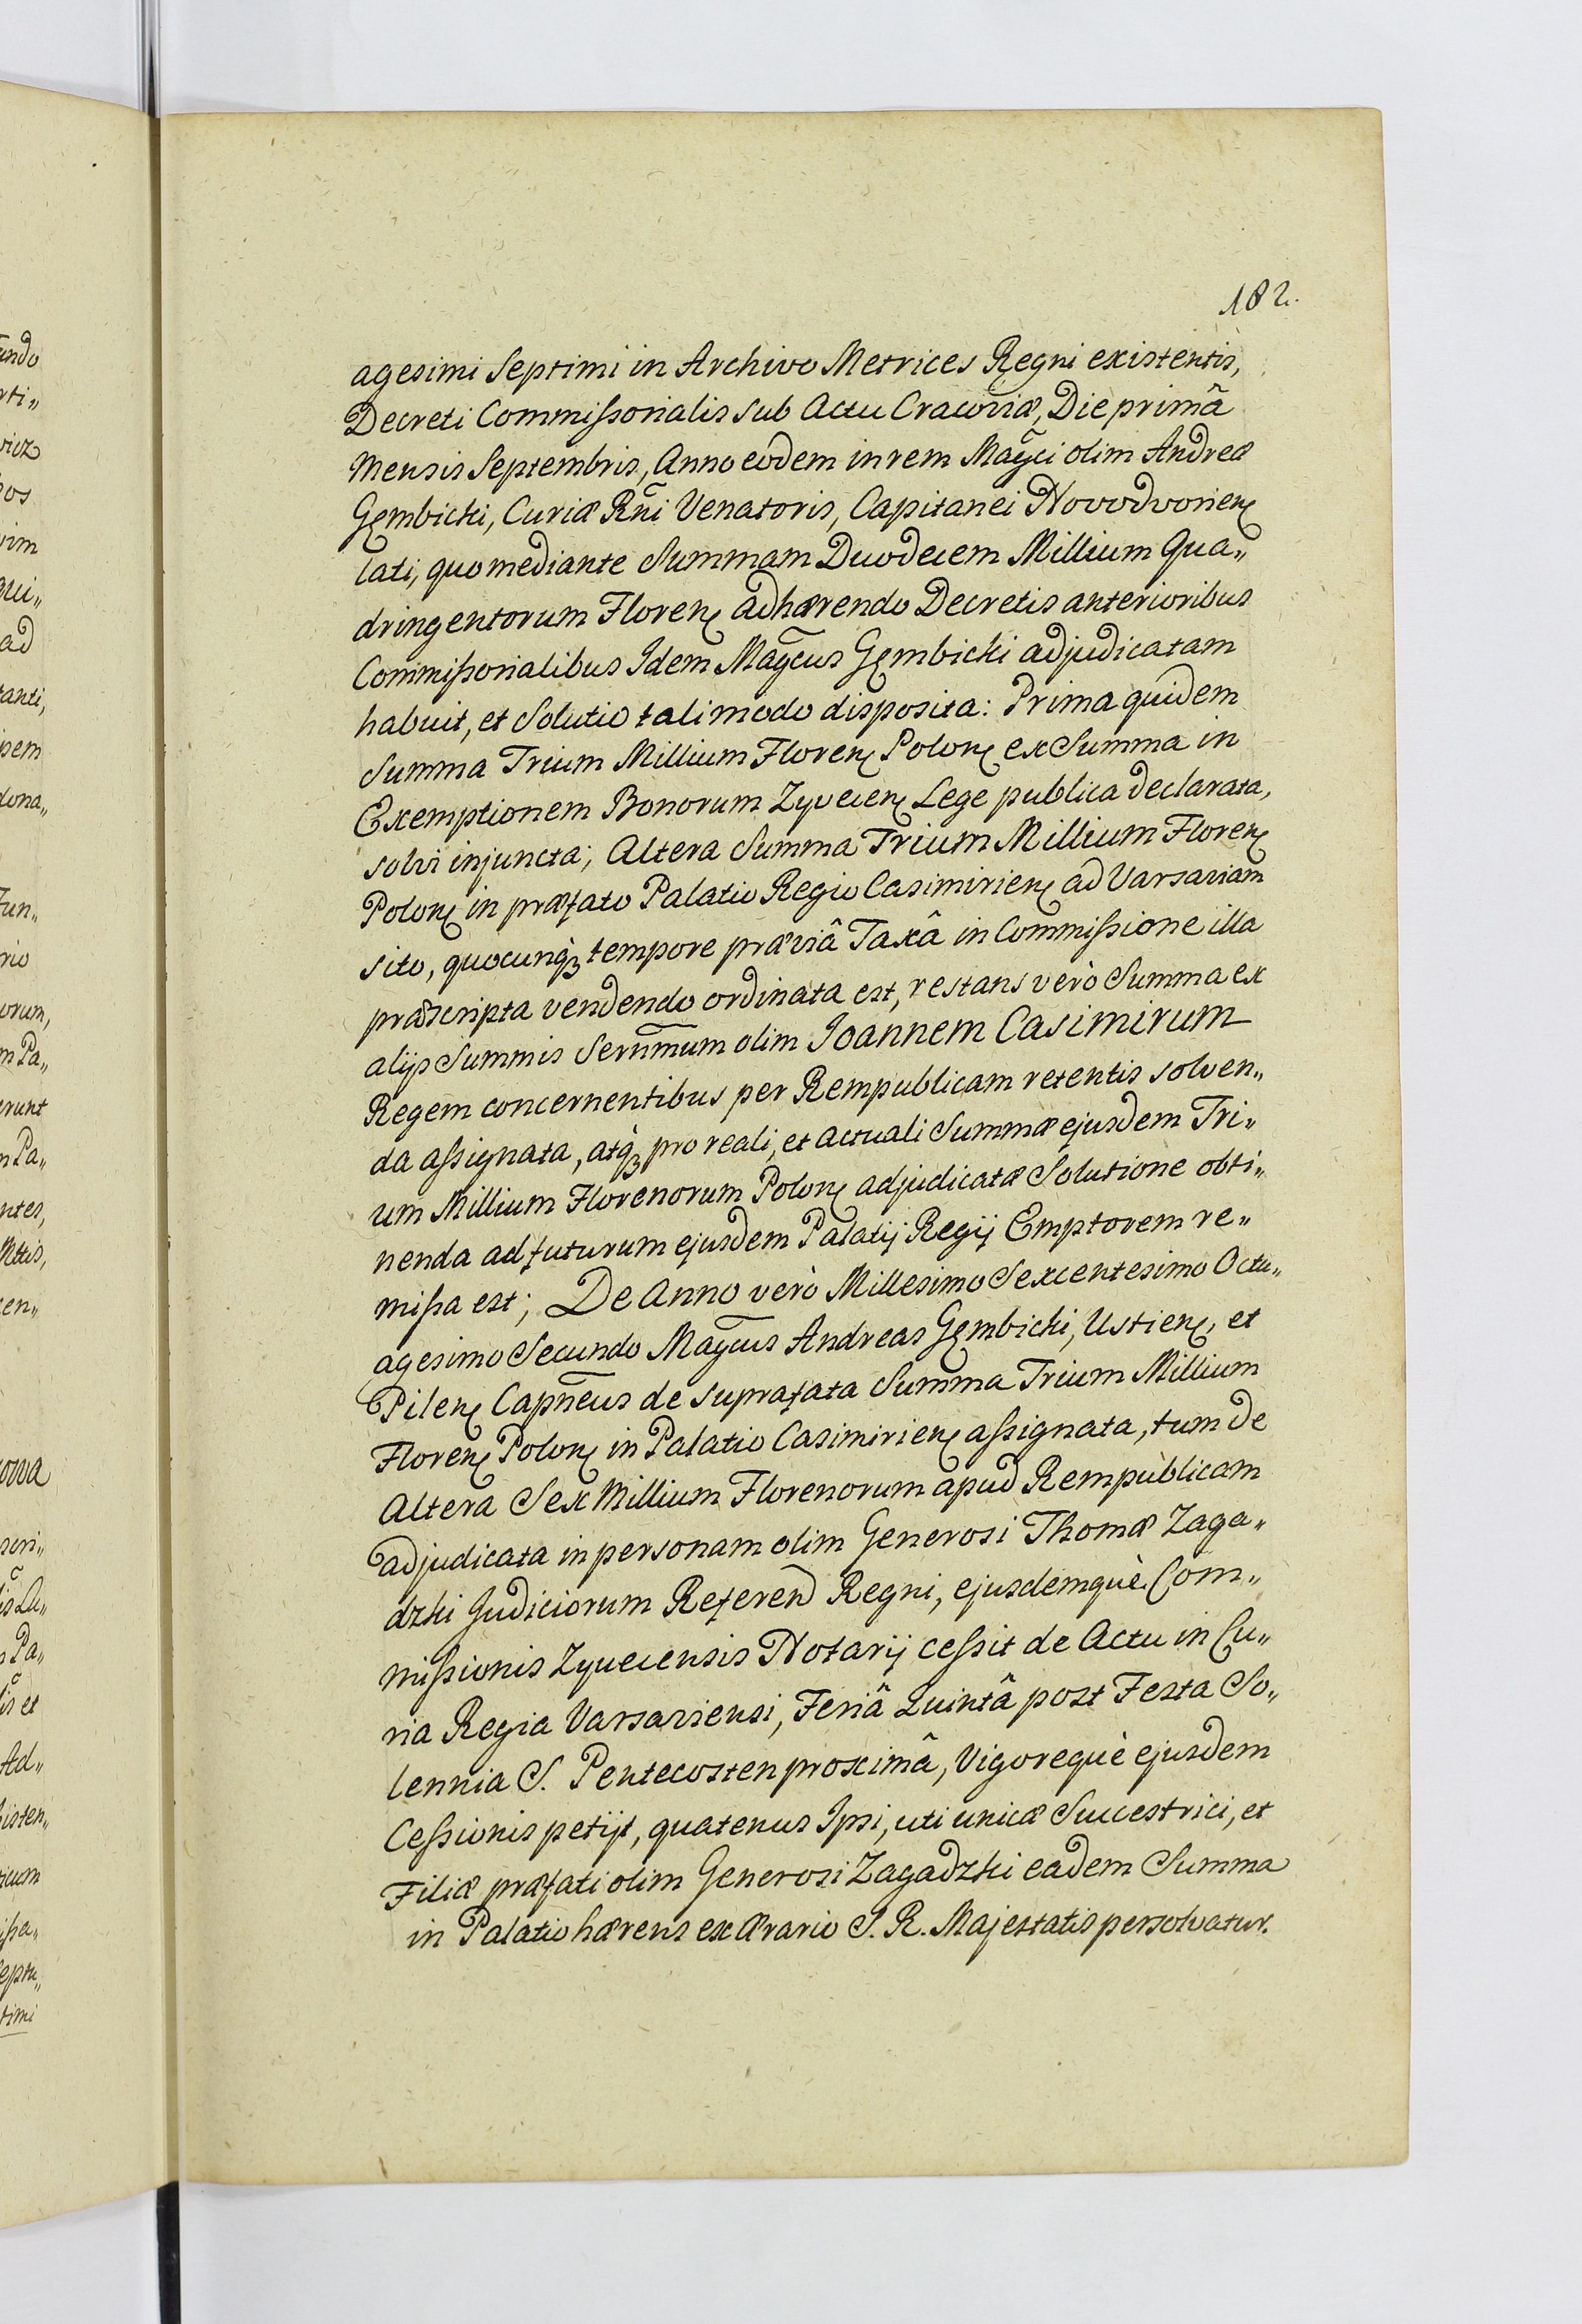 182.
agesimi Septimi in Archivo Metrices Regni existentis,
Decreti Commißorialis sub Actu Cracoviæ, Die primâ
Mensis Septembris, Anno eodem in rem Mag̃ci olim Andreæ
Gembicki, Curiæ Rñi Venatoris, Capitanei Novodvorienꝭ
lati, quo mediante Summam Duodecem Millium Qua„
dringentorum Florenꝭ adhærendo Decretis anterioribus
Commißorialibus Idem Mag̃cus Gembicki adjudicatam
habuit, et Solutio tali modo disposita: Prima quidem
Summa Trium Millium Florenꝭ Polonꝭ ex Summa in
Exemptionem Bonorum Zyvecenꝭ Lege publica declarata,
solvi injuncta; Altera Summa Trium Millium Florenꝭ
Polonꝭ in præfato Palatio Regio Casimirienꝭ ad Varsaviam
sito, quocunqꝫ tempore præviâ Taxâ in Commißione illa
præscripta vendendo ordinata est, restans verò Summa ex
alijs Summis Serñmum olim Joannem Casimirum
Regem concernentibus per Rempublicam retentis solven„
da aßignata, atqꝫ pro reali, et actuali Summæ ejusdem Tri„
um Millium Florenorum Polonꝭ adjudicatæ Solutione obti„
nenda ad futurum ejusdem Palatij Regij Emptorem re„
mißa est; De Anno verò Millesimo Sexcentesimo Octu„
agesimo Secundo Mag̃cus Andreas Gembicki, Ustienꝭ, et
Pilenꝭ Capñeus de suprafata Summa Trium Millium
Florenꝭ Polonꝭ in Palatio Casimirienꝭ aßignata, tum de
Altera Sex Millium Florenorum apud Rempublicam
adjudicata in personam olim Generosi Thomæ Zaga„
dzki Judiciorum Referenð Regni, ejusdemquè Com„
mißionis Zyvecensis Notarij ceßit de Actu in Cu„
ria Regia Varsaviensi, Feriâ Quintâ post Festa So„
lennia S. Pentecosten proximâ, Vigorequè ejusdem
Ceßionis petijt, quatenus Ipsi, uti unicæ Succestrici, et
Filiæ præfati olim Generosi Zagadzki eadem Summa
in Palatio hærens ex ærario S. R. Majestatis persolvatur.